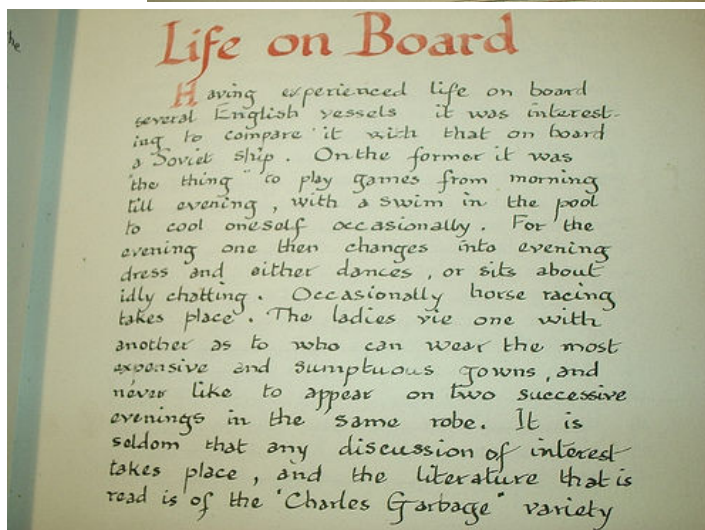 he
Life on Board
Having experienced life on board
several English vessels it was interest-
ing to compare it with that on board
a Soviet ship. On the former it was
"the thing" to play games from morning
till evening, with a swim in the pool
to cool oneself occasionally. For the
evening one then changes into evening
dress and either dances, or sits about
idly chatting. Occasionally horse racing
takes place. The ladies vie one with
another as to who can wear the most
expensive and sumptuous gowns, and
never like to appear on two successive
evenings in the same robe. It is
seldom that any discussion of interest
takes place, and the literature that is
read is of the "Charles Garbage" variety